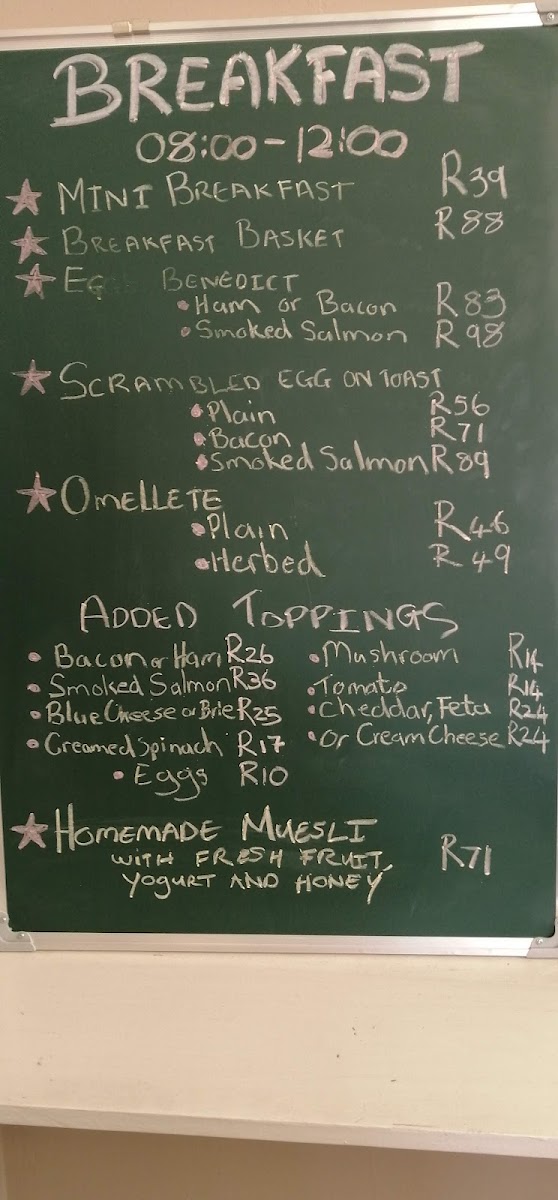 BREAKFAST
08:00-12:00
MINI BREAKFAST R39
BREAKFAST BASKET R88
EGGS BENEDICT
Ham or Bacon R83
Smoked Salmon R98
SCRAMBLED EGG ON TOAST
Plain R56
Bacon R71
Smoked Salmon R89
OMELLETE
Plain R46
Herbed R49
ADDED TOPPINGS
Bacon or Ham R26 Mushroom R14
Smoked Salmon R36 Tomato R14
Blue Cheese or Brie R25 Cheddar, Feta R24
Creamed Spinach R17 Or Cream Cheese R24
Eggs R10
HOMEMADE MUESLI
WITH FRESH FRUIT, R71
YOGURT AND HONEY